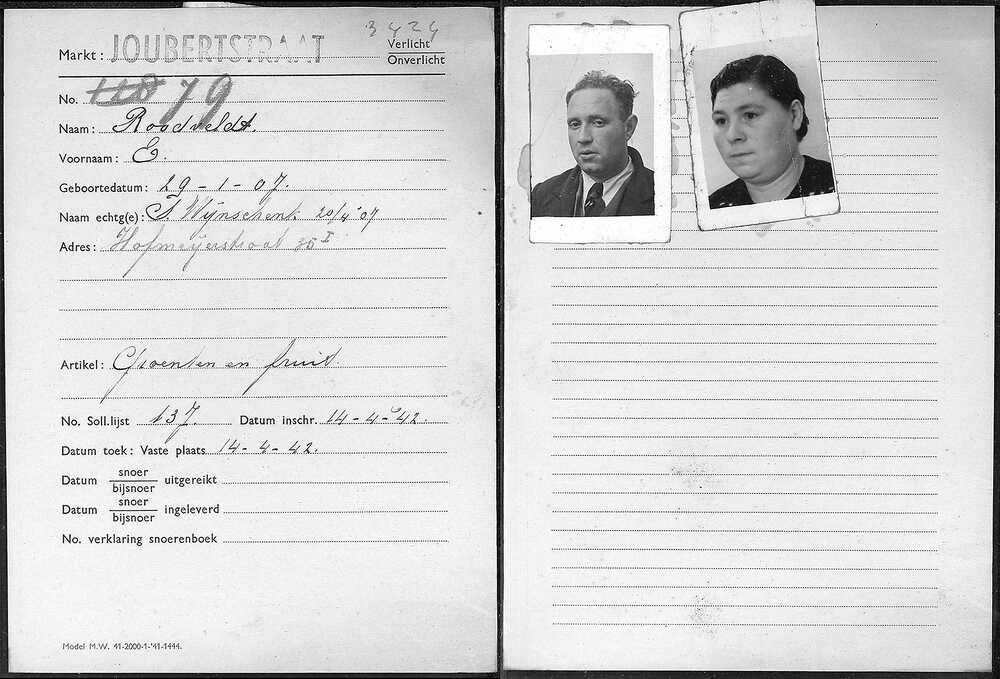 3424
Markt: JOUBERTSTRAAT Verlicht
Onverlicht
No. 118 79
Naam: Roodveldt.
Voornaam: E.
Geboortedatum: 29-1-07.
Naam echtg(e): S. Wijnschenk 20/4 '07
Adres: Hofmeijerstraat 36 I
Artikel: Groenten en fruit.
No. Soll.lijst 137. Datum inschr. 14-4-'42.
Datum toek: Vaste plaats 14-4-42.
Datum snoer
bijsnoer uitgereikt
Datum snoer
bijsnoer ingeleverd
No. verklaring snoerenboek
Model M.W. 41-2000-1-'41-1444.